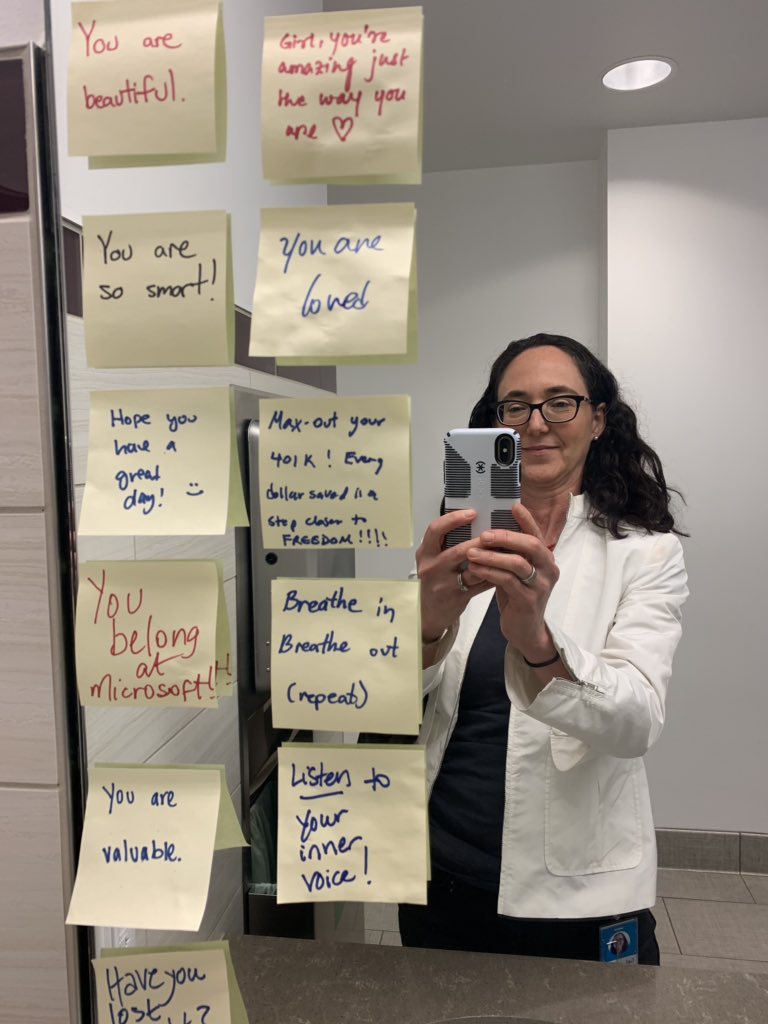 You are
beautiful.
Girl, you're
amazing just
the way you
are ♡
You are
so smart!
You are
loved
Hope you
have a
great
day! :)
Max-out your
401K! Every
dollar saved is a
step closer to
FREEDOM!!!!
You
belong
at
microsoft!!!
Breathe in
Breathe out
(repeat)
You are
valuable.
Listen to
your
inner
voice!
Have you
lost